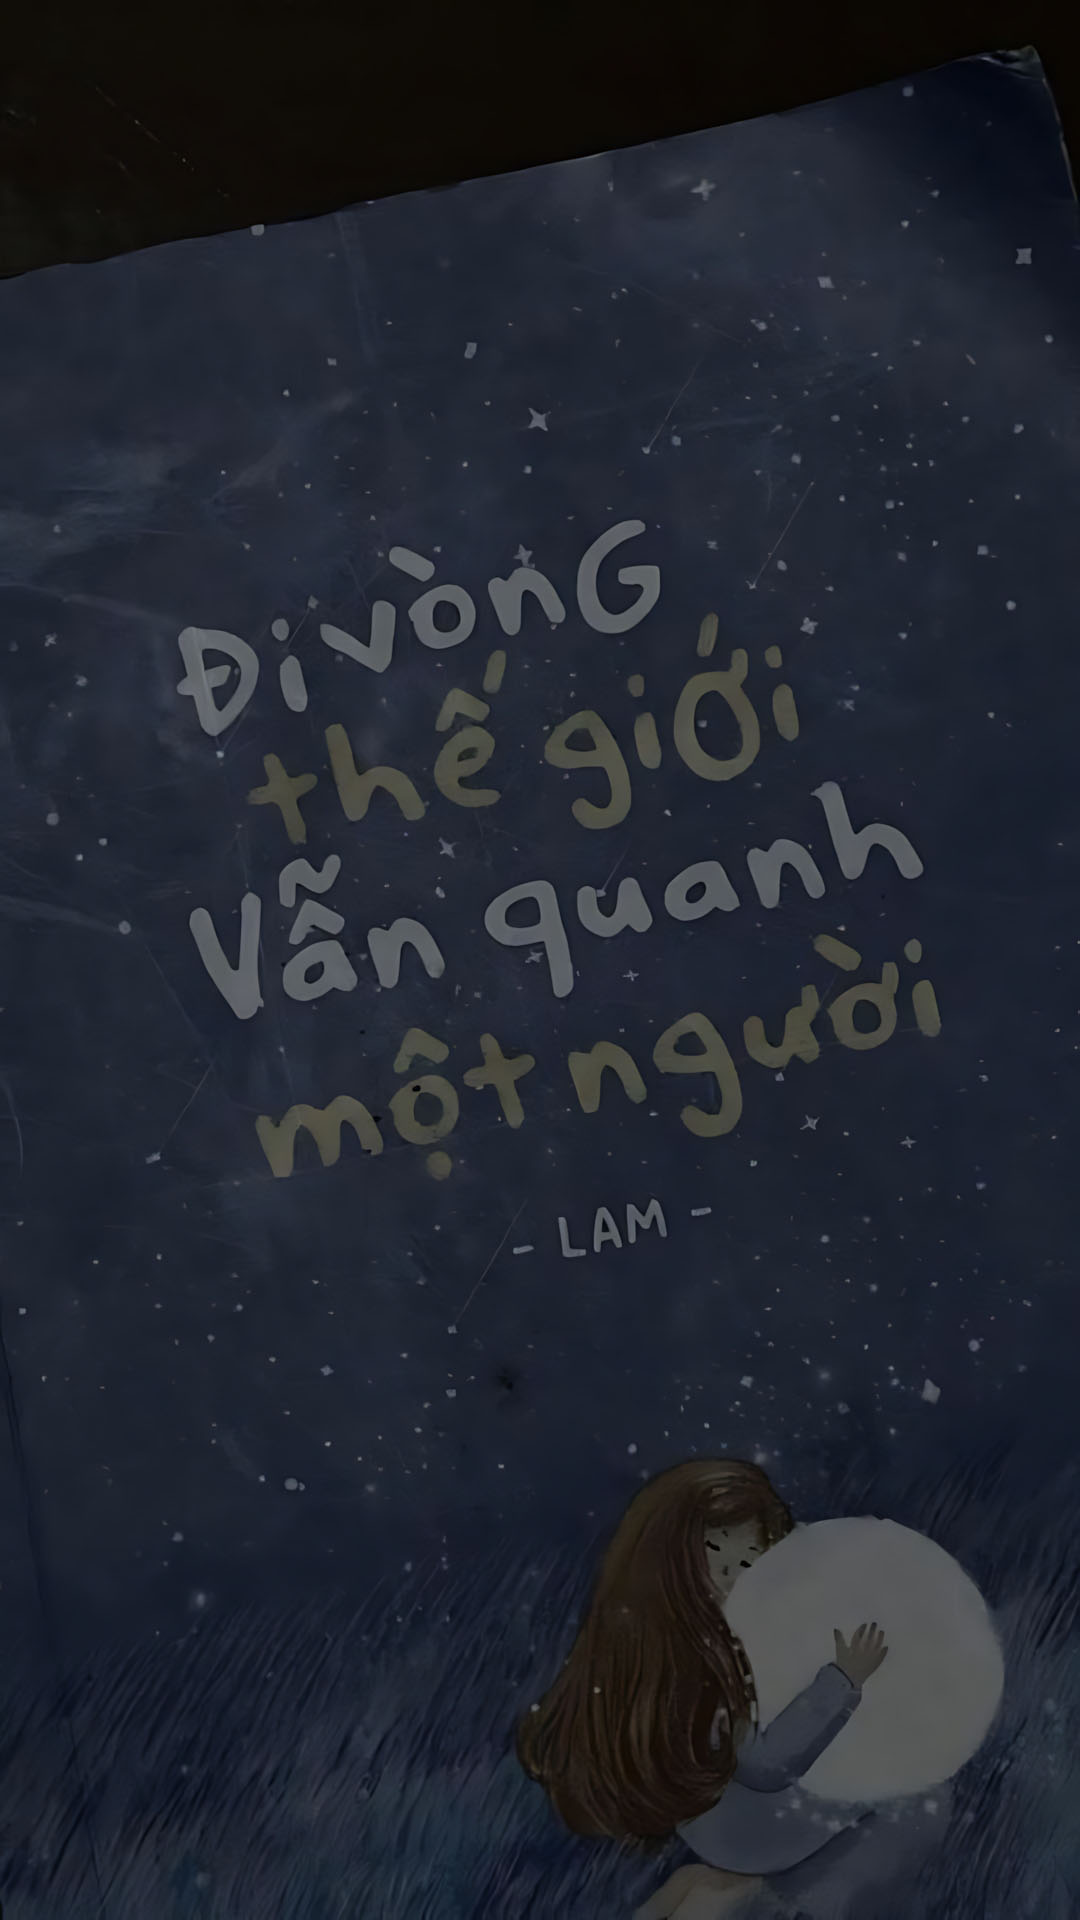 Đi vònG
thế giới
Vẫn quanh
một người
- LAM -